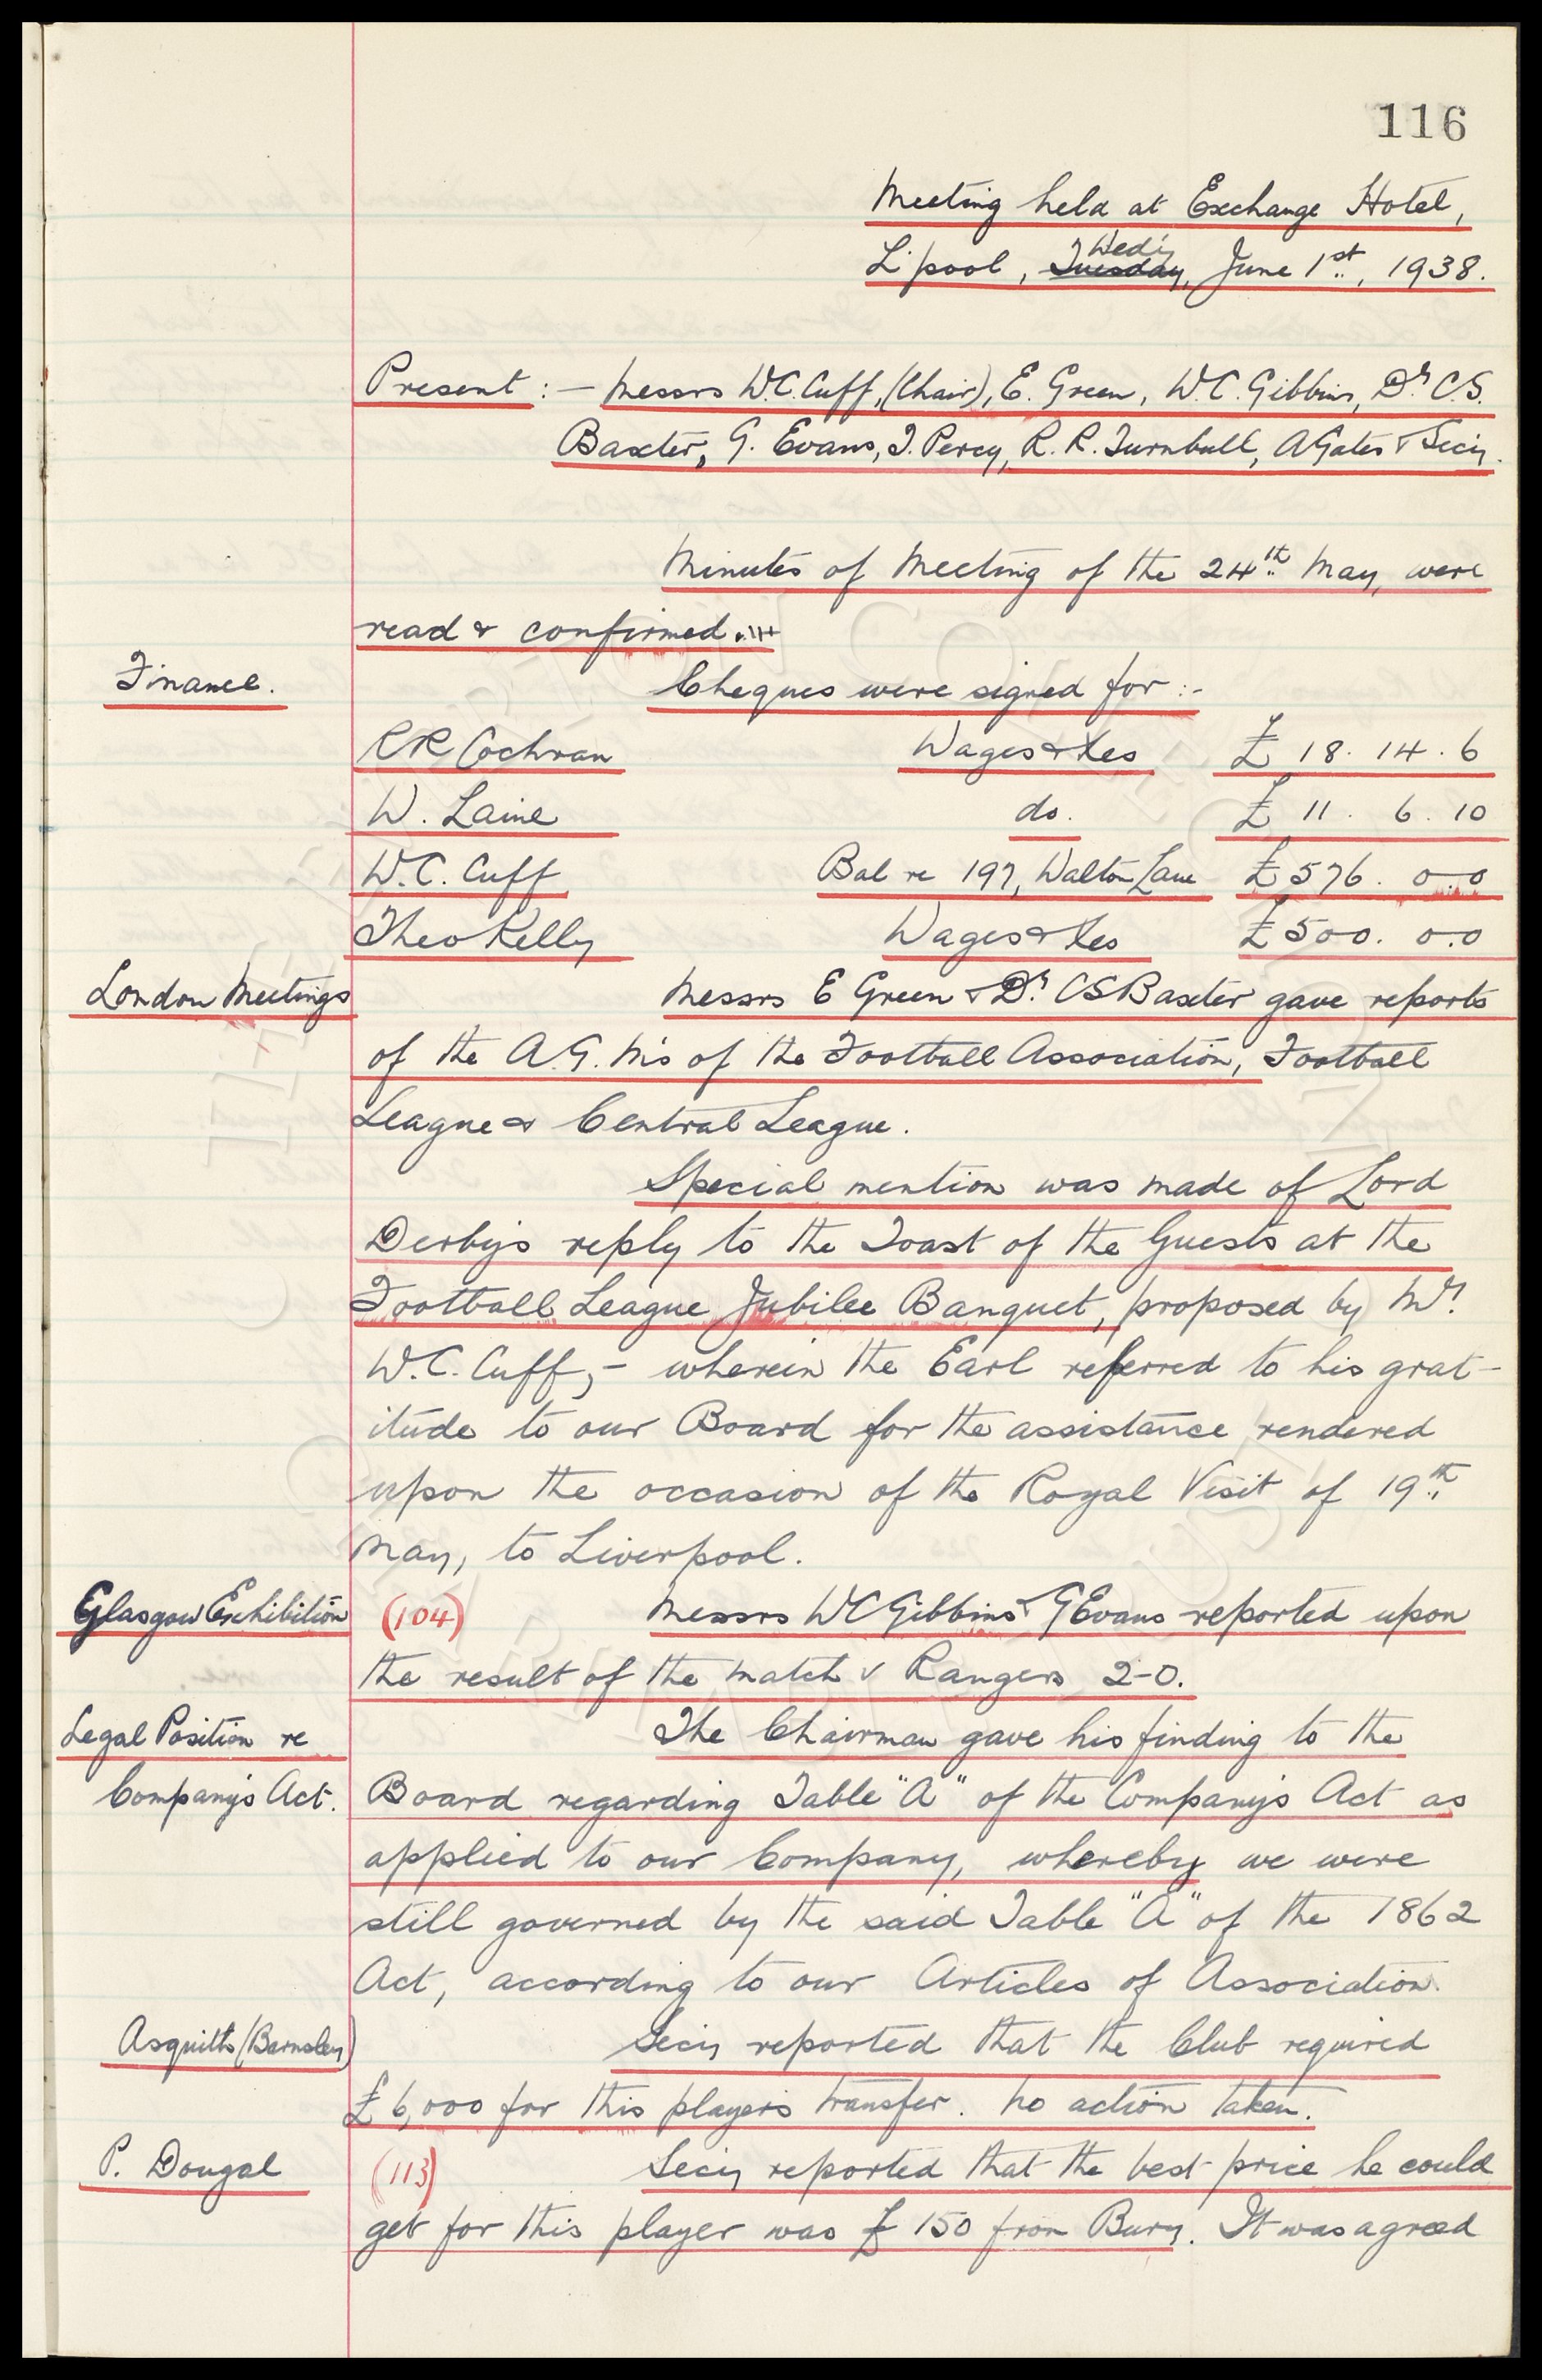 116
Meeting held at Exchange Hotel,
L'pool, Tuesday, Wed'y June 1st, 1938.
Present :- Messrs W.C. Cuff, (Chair), E. Green, W.C. Gibbins, Dr. C.S.
Baxter, G. Evans, T. Percy, R.R. Turnbull, A Gates & Sec'y.
Minutes of Meeting of the 24th May, were
read & confirmed.
Finance.
Cheques were signed for :-
RR Cochran Wages & Xes £ 18. 14. 6
W. Laine do. £ 11. 6. 10
W.C. Cuff Bal re 197, Walton Lane £ 576. 0.0
Theo Kelly Wages & Xes £ 500. 0.0
London Meetings Messrs E Green & Dr. CS Baxter gave reports
of the A.G.M's of the Football Association, Football
League & Central League.
Special mention was made of Lord
Derby's reply to the Toast of the Guests at the
Football League Jubilee Banquet, proposed by Mr.
W.C. Cuff, - wherein the Earl referred to his grat-
itude to our Board for the assistance rendered
upon the occasion of the Royal Visit of 19th
May, to Liverpool.
Glasgow Exhibition (104) Messrs WC Gibbins & G Evans reported upon
the result of the match v Rangers 2-0.
Legal Position re The Chairman gave his finding to the
Company's Act. Board regarding Table "A" of the Company's Act as
applied to our Company, whereby we were
still governed by the said Table "A" of the 1862
Act, according to our Articles of Association.
Asquith (Barnsley) Sec'y reported that the Club required
£6,000 for this player's transfer. No action taken.
P. Dougal (113) Sec'y reported that the best price he could
get for this player was £150 from Bury. It was agreed